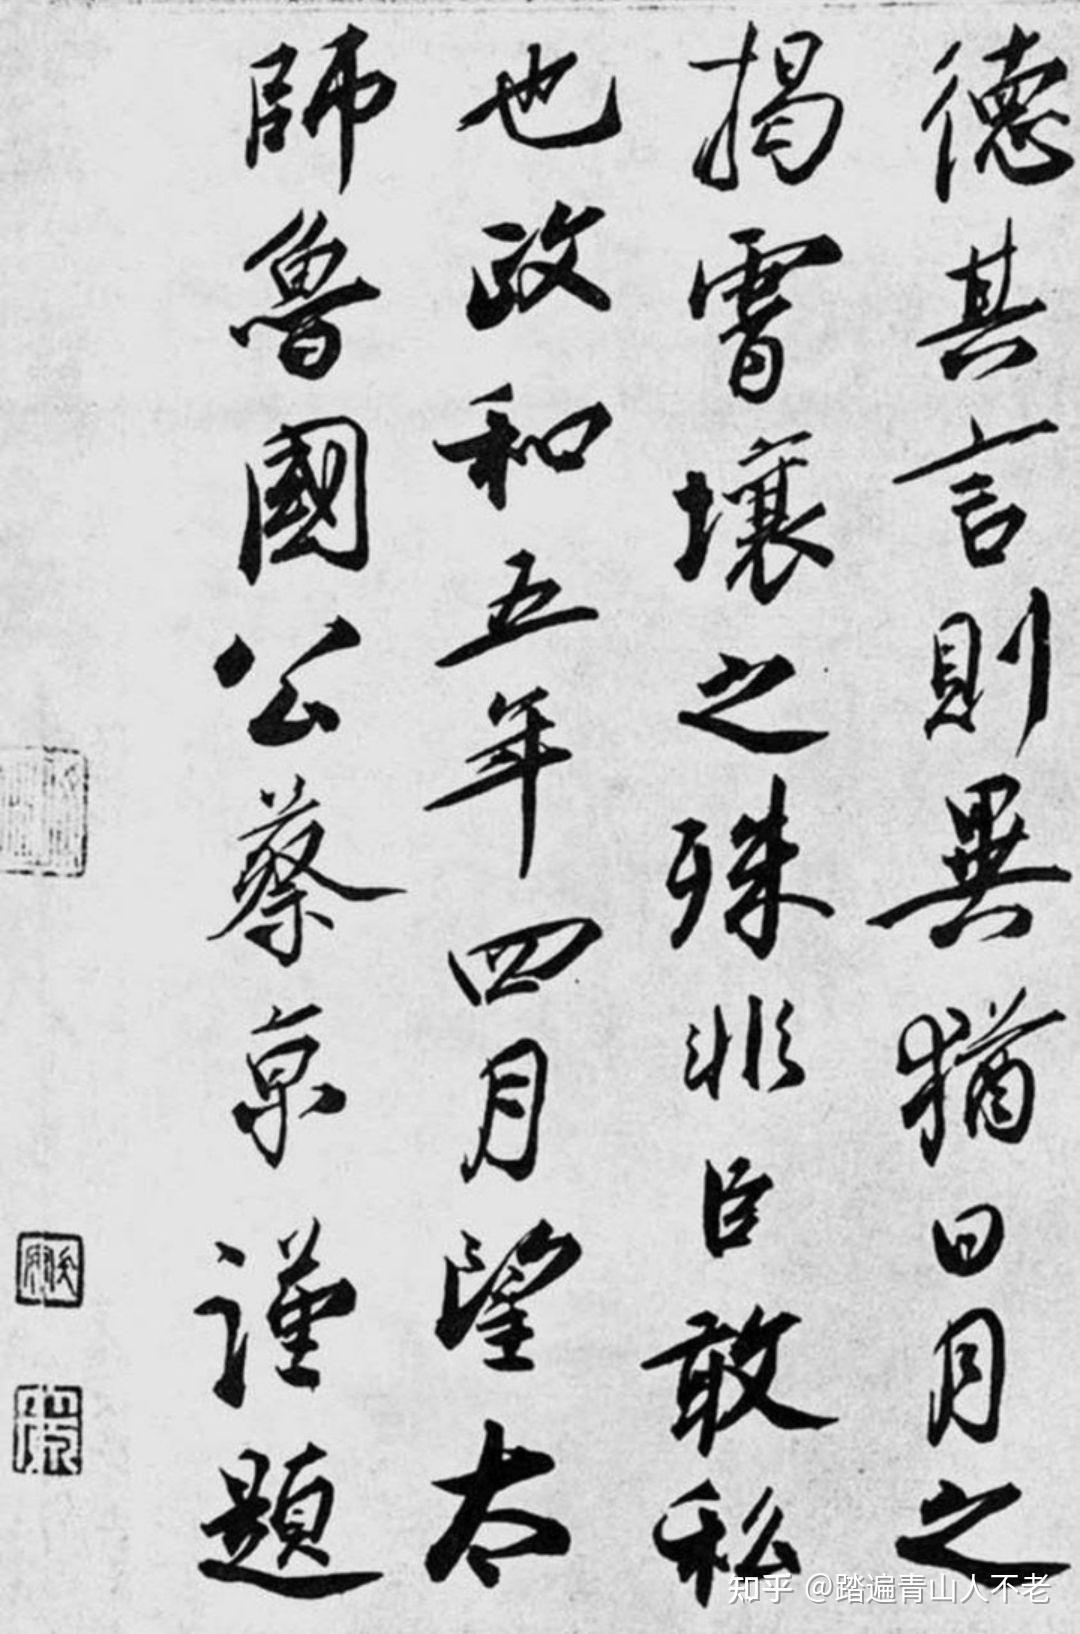 德其言則異猶日月之
揭霄壤之殊非臣敢私
也政和五年四月望太
師魯國公蔡京謹題
知乎 @踏遍青山人不老